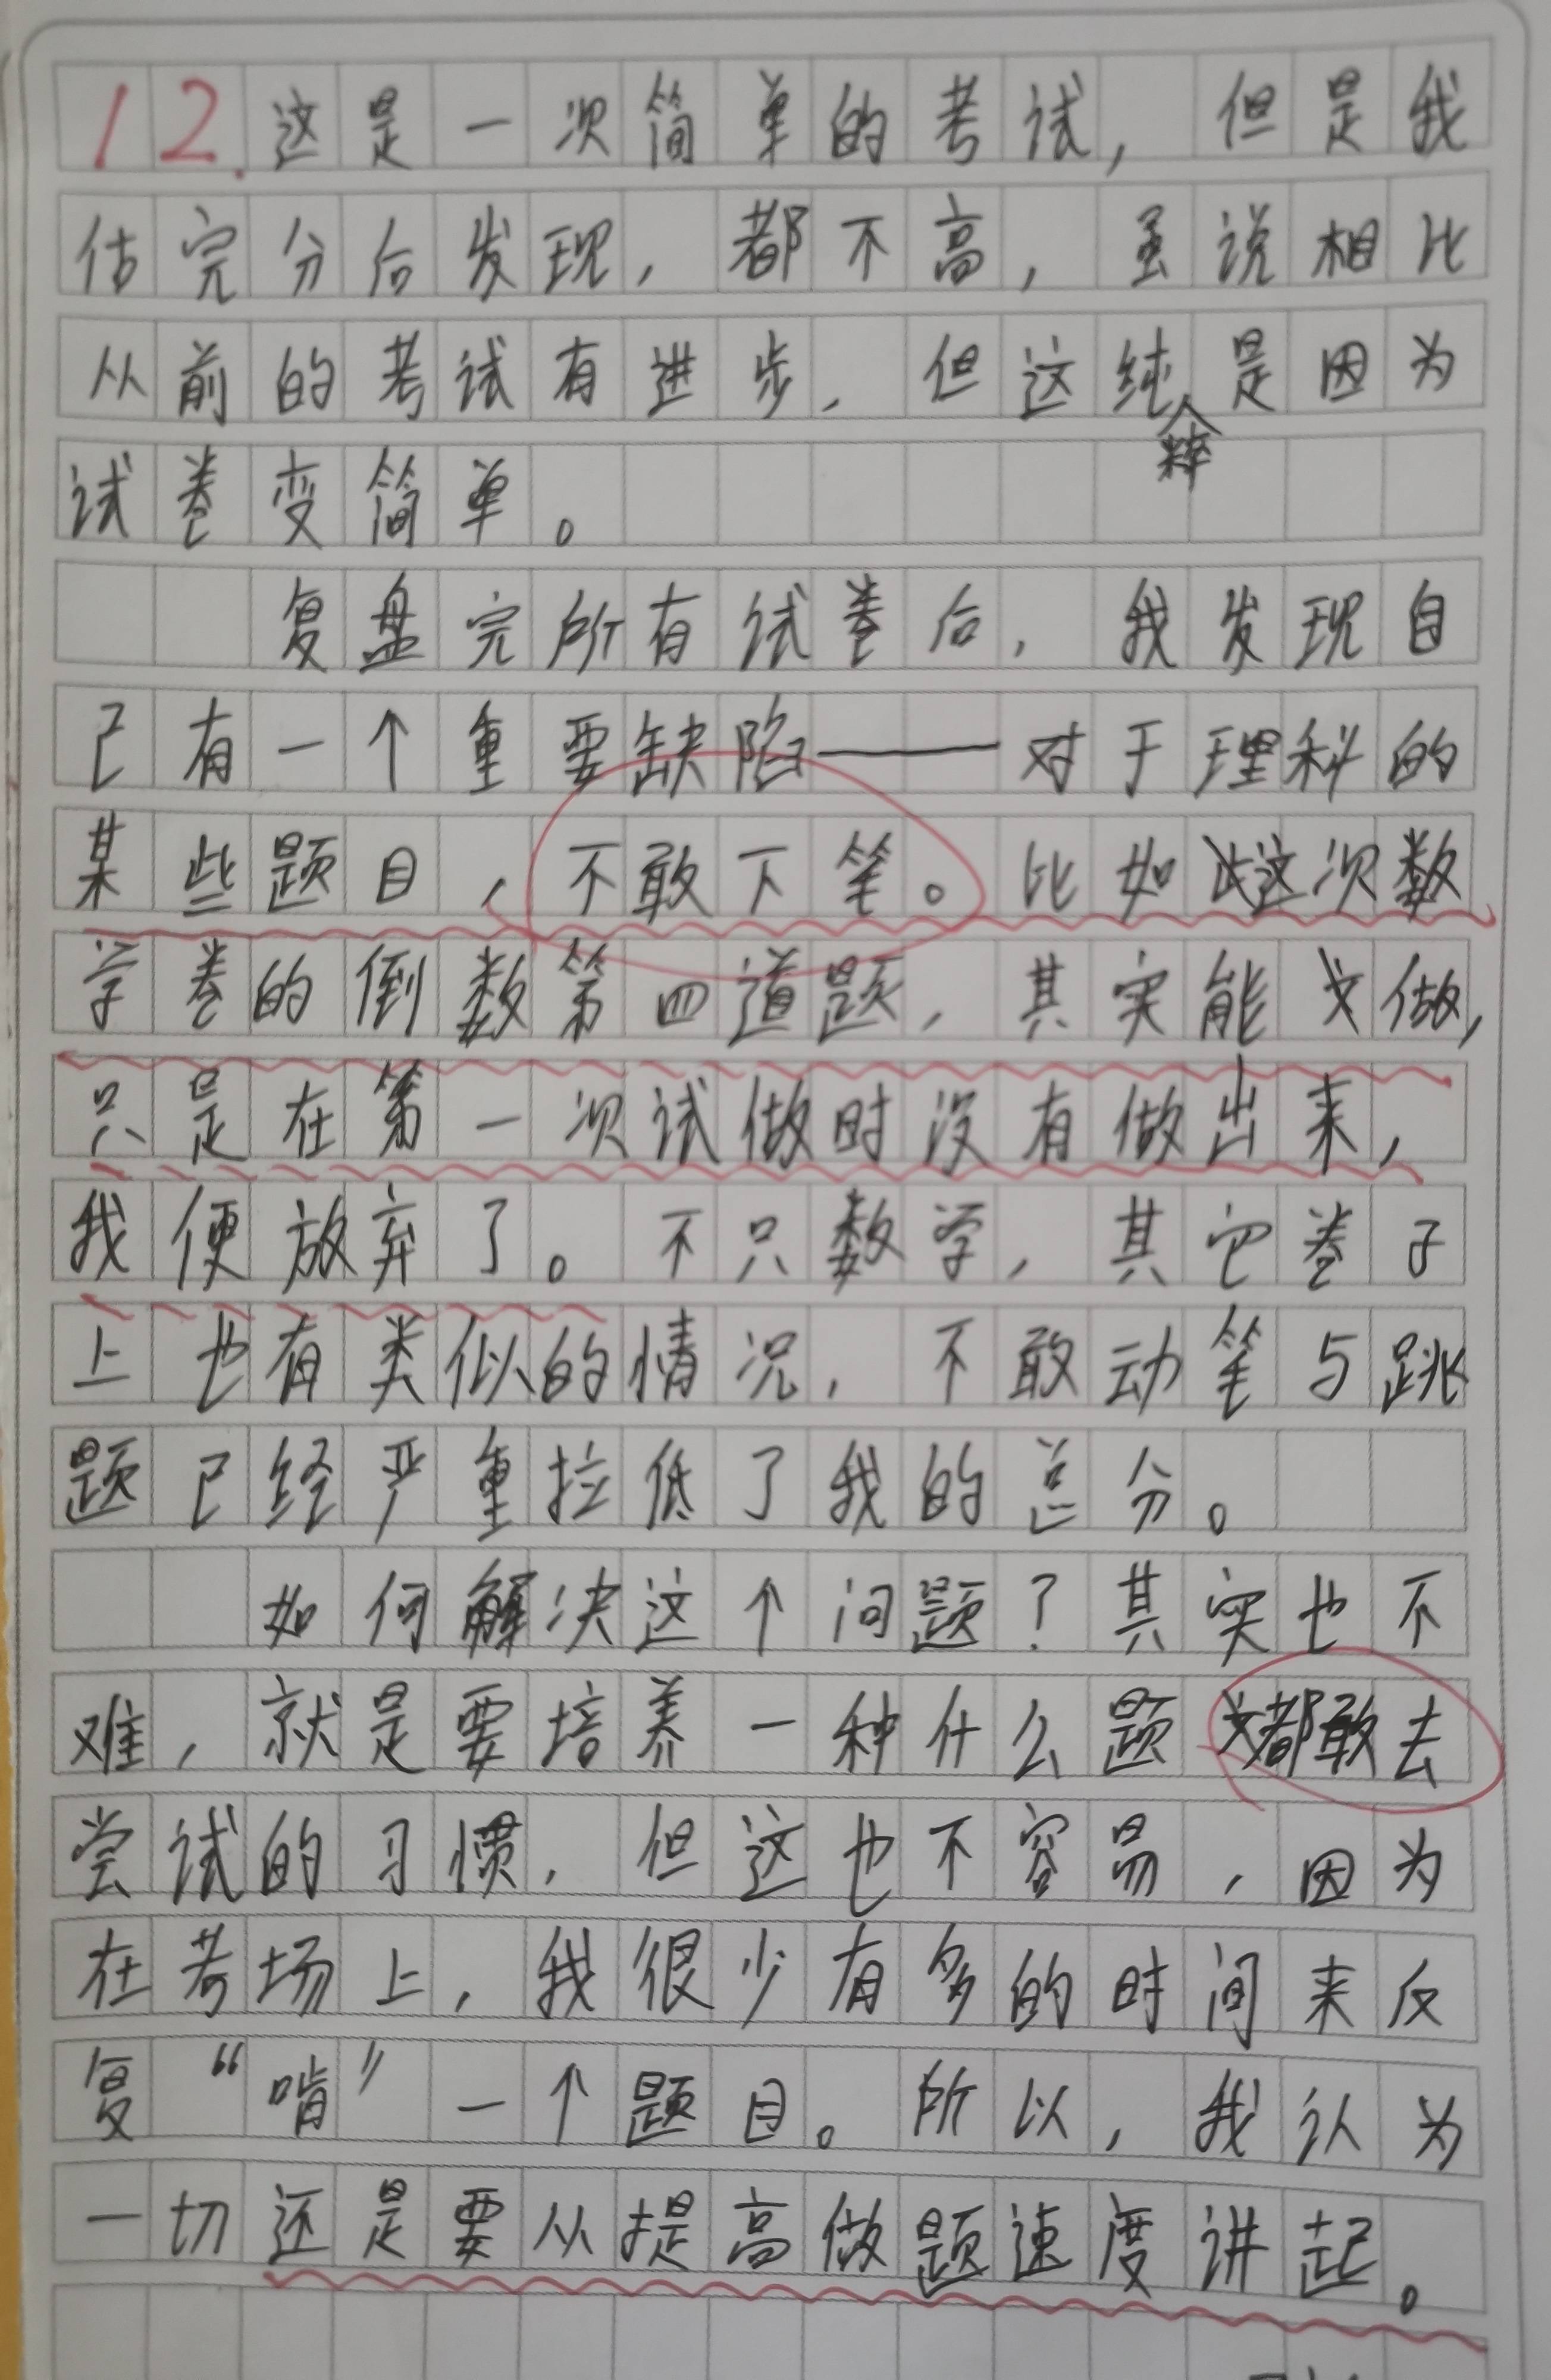 12.这是一次简单的考试，但是我
估完分后发现，都不高，虽说相比
从前的考试有进步，但这纯粹是因为
试卷变简单。
复盘完所有试卷后，我发现自
己有一个重要缺陷——对于理科的
某些题目，不敢下笔。比如这次数
学卷的倒数第四道题，其实能做，
只是在第一次试做时没有做出来，
我便放弃了。不只数学，其它卷子
上也有类似的情况，不敢动笔与跳
题已经严重拉低了我的总分。
如何解决这个问题？其实也不
难，就是要培养一种什么题都敢去
尝试的习惯，但这也不容易，因为
在考场上，我很少有多的时间来反
复“啃”一个题目。所以，我认为
一切还是要从提高做题速度讲起。